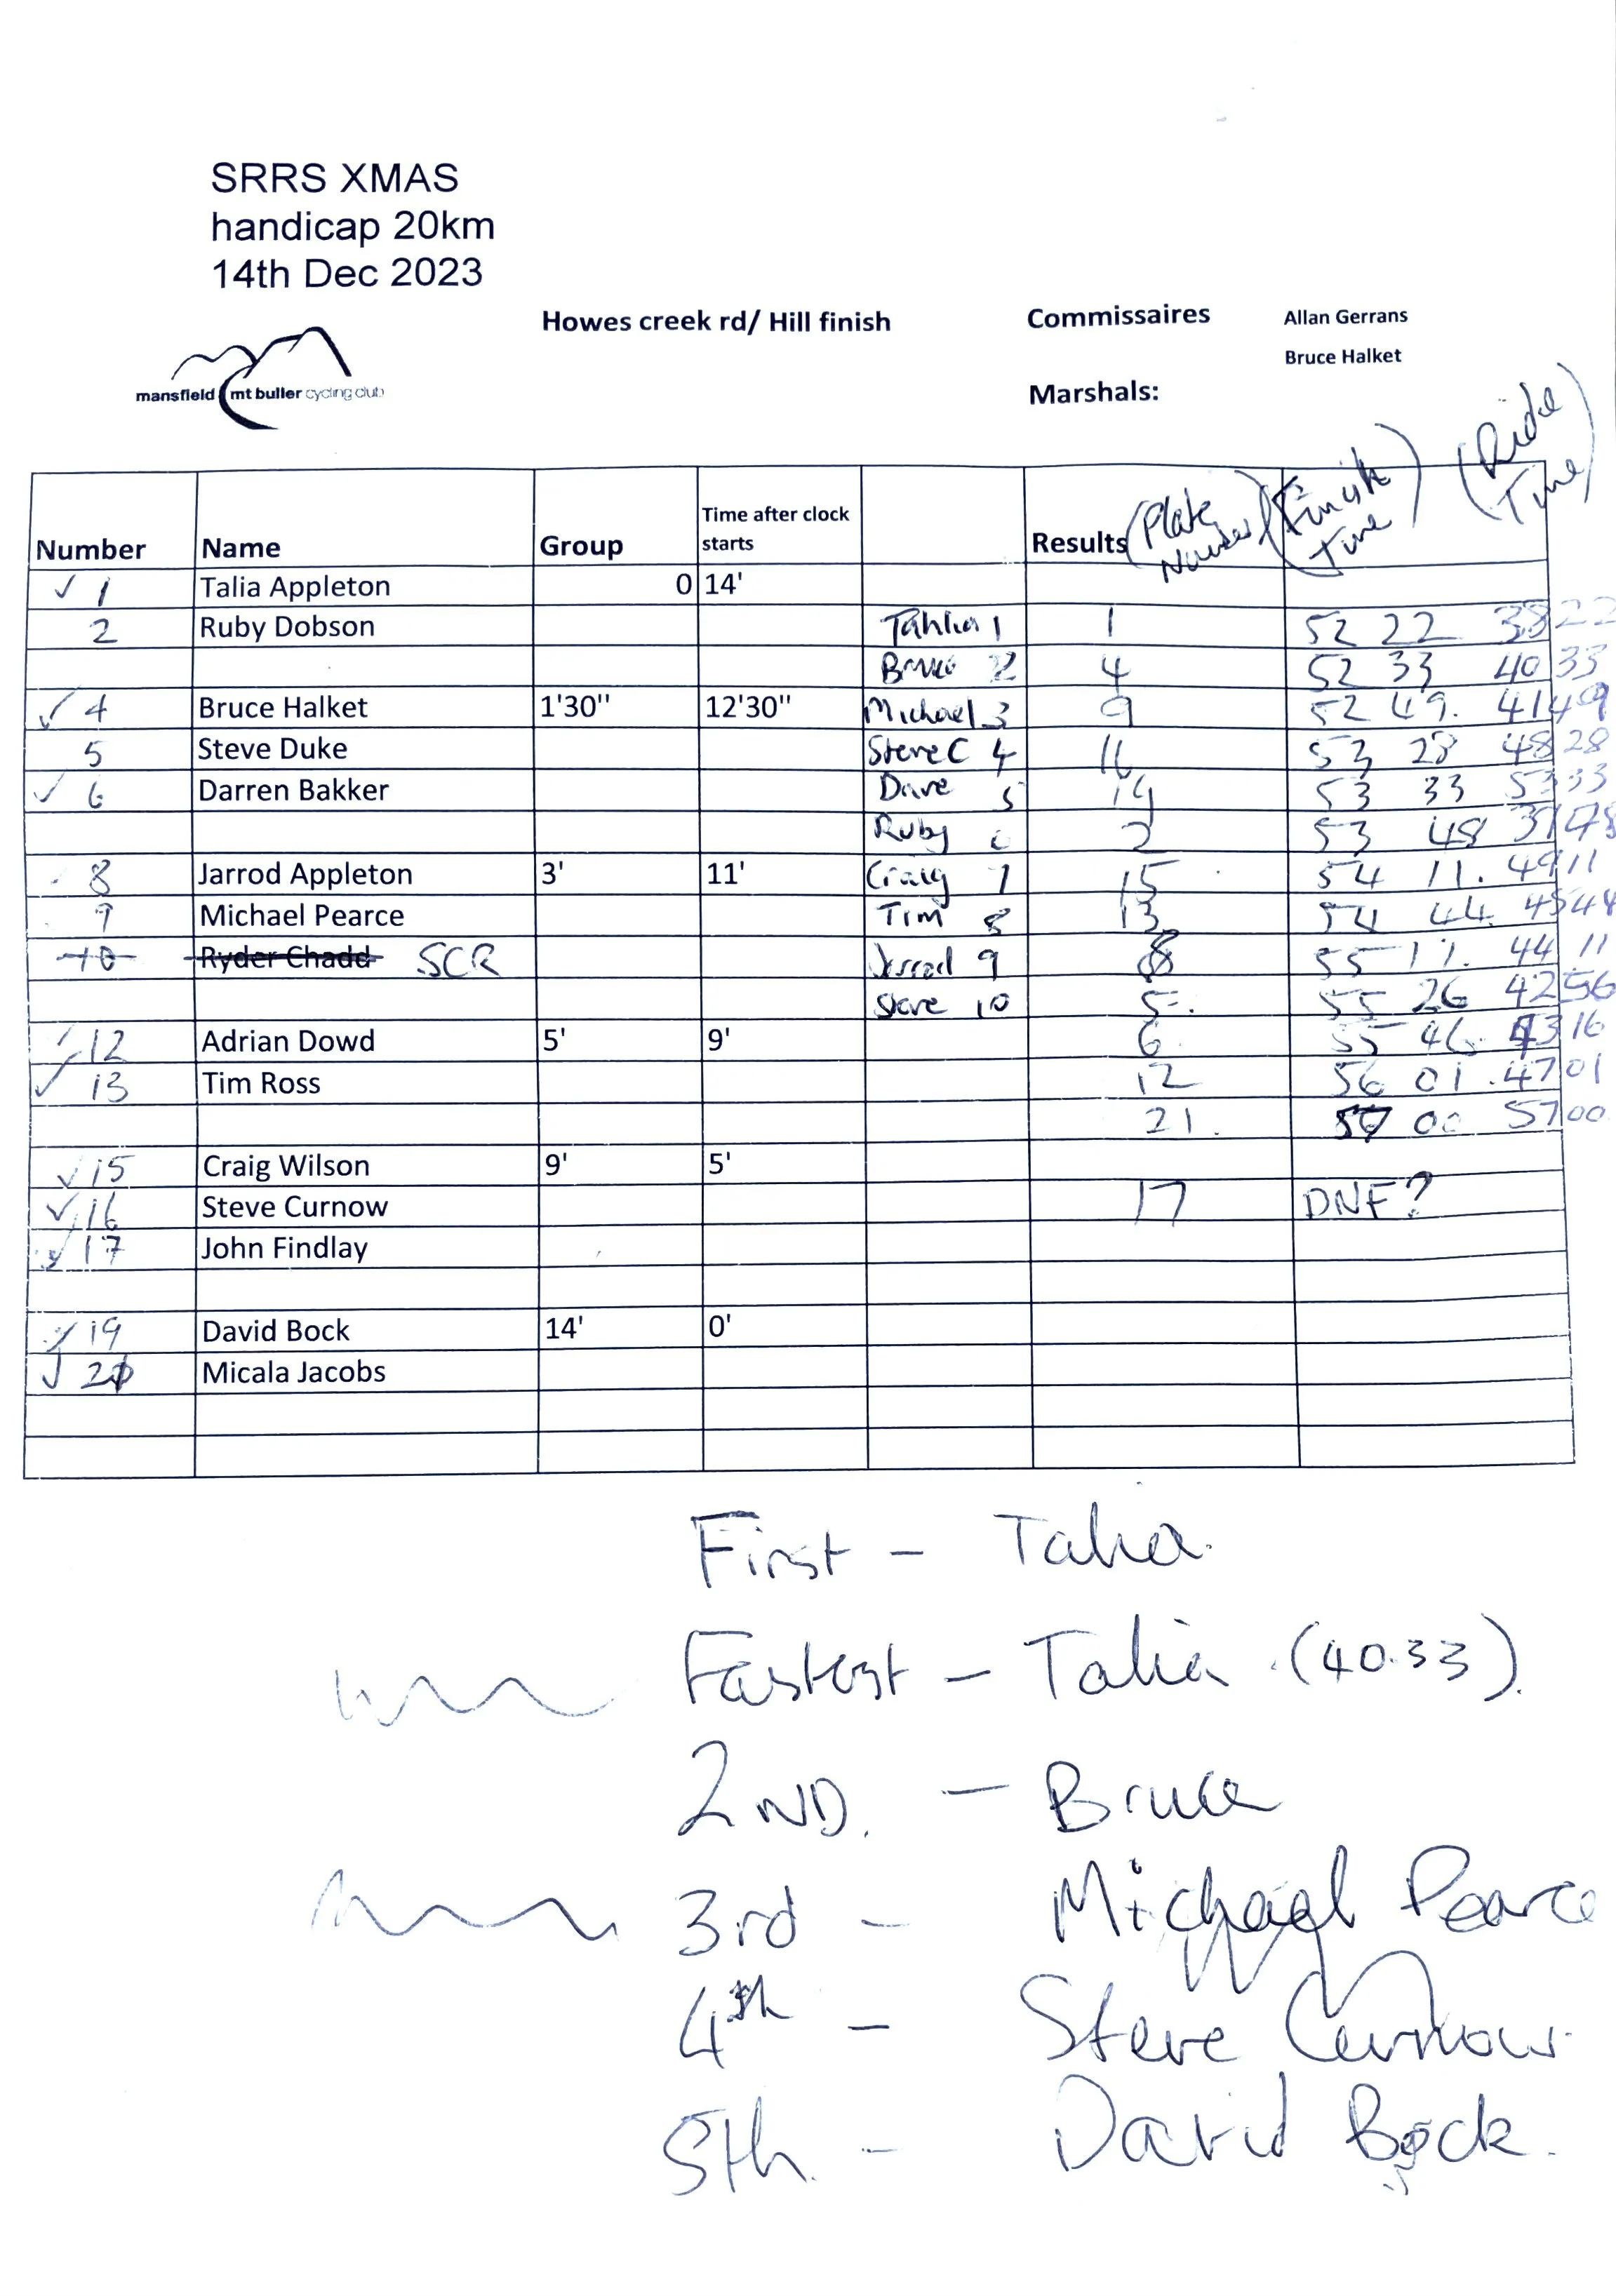 SRRS XMAS
handicap 20km
14th Dec 2023
Howes creek rd/ Hill finish Commissaires Allan Gerrans
Bruce Halket
mansfield mt buller cycling club
Marshals:
Number Name Group Time after clock starts Results (Plate Number) (Finish Time) (Ride Time)
✓ 1 Talia Appleton 0 14'
2 Ruby Dobson Tahlia 1 1 52 22 3822
Bruce 2 4 52 33 40 33
✓ 4 Bruce Halket 1'30" 12'30" Michael 3 9 52 49. 4149
5 Steve Duke Steve C 4 16 53 28 48 28
✓ 6 Darren Bakker Dave 5 19 53 33 5333
Ruby 6 2 53 48 3948
8 Jarrod Appleton 3' 11' Craig 7 15 54 11. 4911
9 Michael Pearce Tim 8 13 54 44 4544
10 Ryder Chadd SCR Jarrod 9 8 55 11. 44 11
Steve 10 5. 55 26 4256
✓ 12 Adrian Dowd 5' 9' 6 55 46. 4316
✓ 13 Tim Ross 12 56 01 .4701
21. 57 00 5700
✓ 15 Craig Wilson 9' 5'
✓ 16 Steve Curnow 17 DNF?
✓ 17 John Findlay
✓ 19 David Bock 14' 0'
✓ 21 Micala Jacobs
First - Talia.
Fastest - Talia (40.33).
2ND. - Bruce
3rd - Michael Pearce
4th - Steve Curnow.
5th. - David Bock.